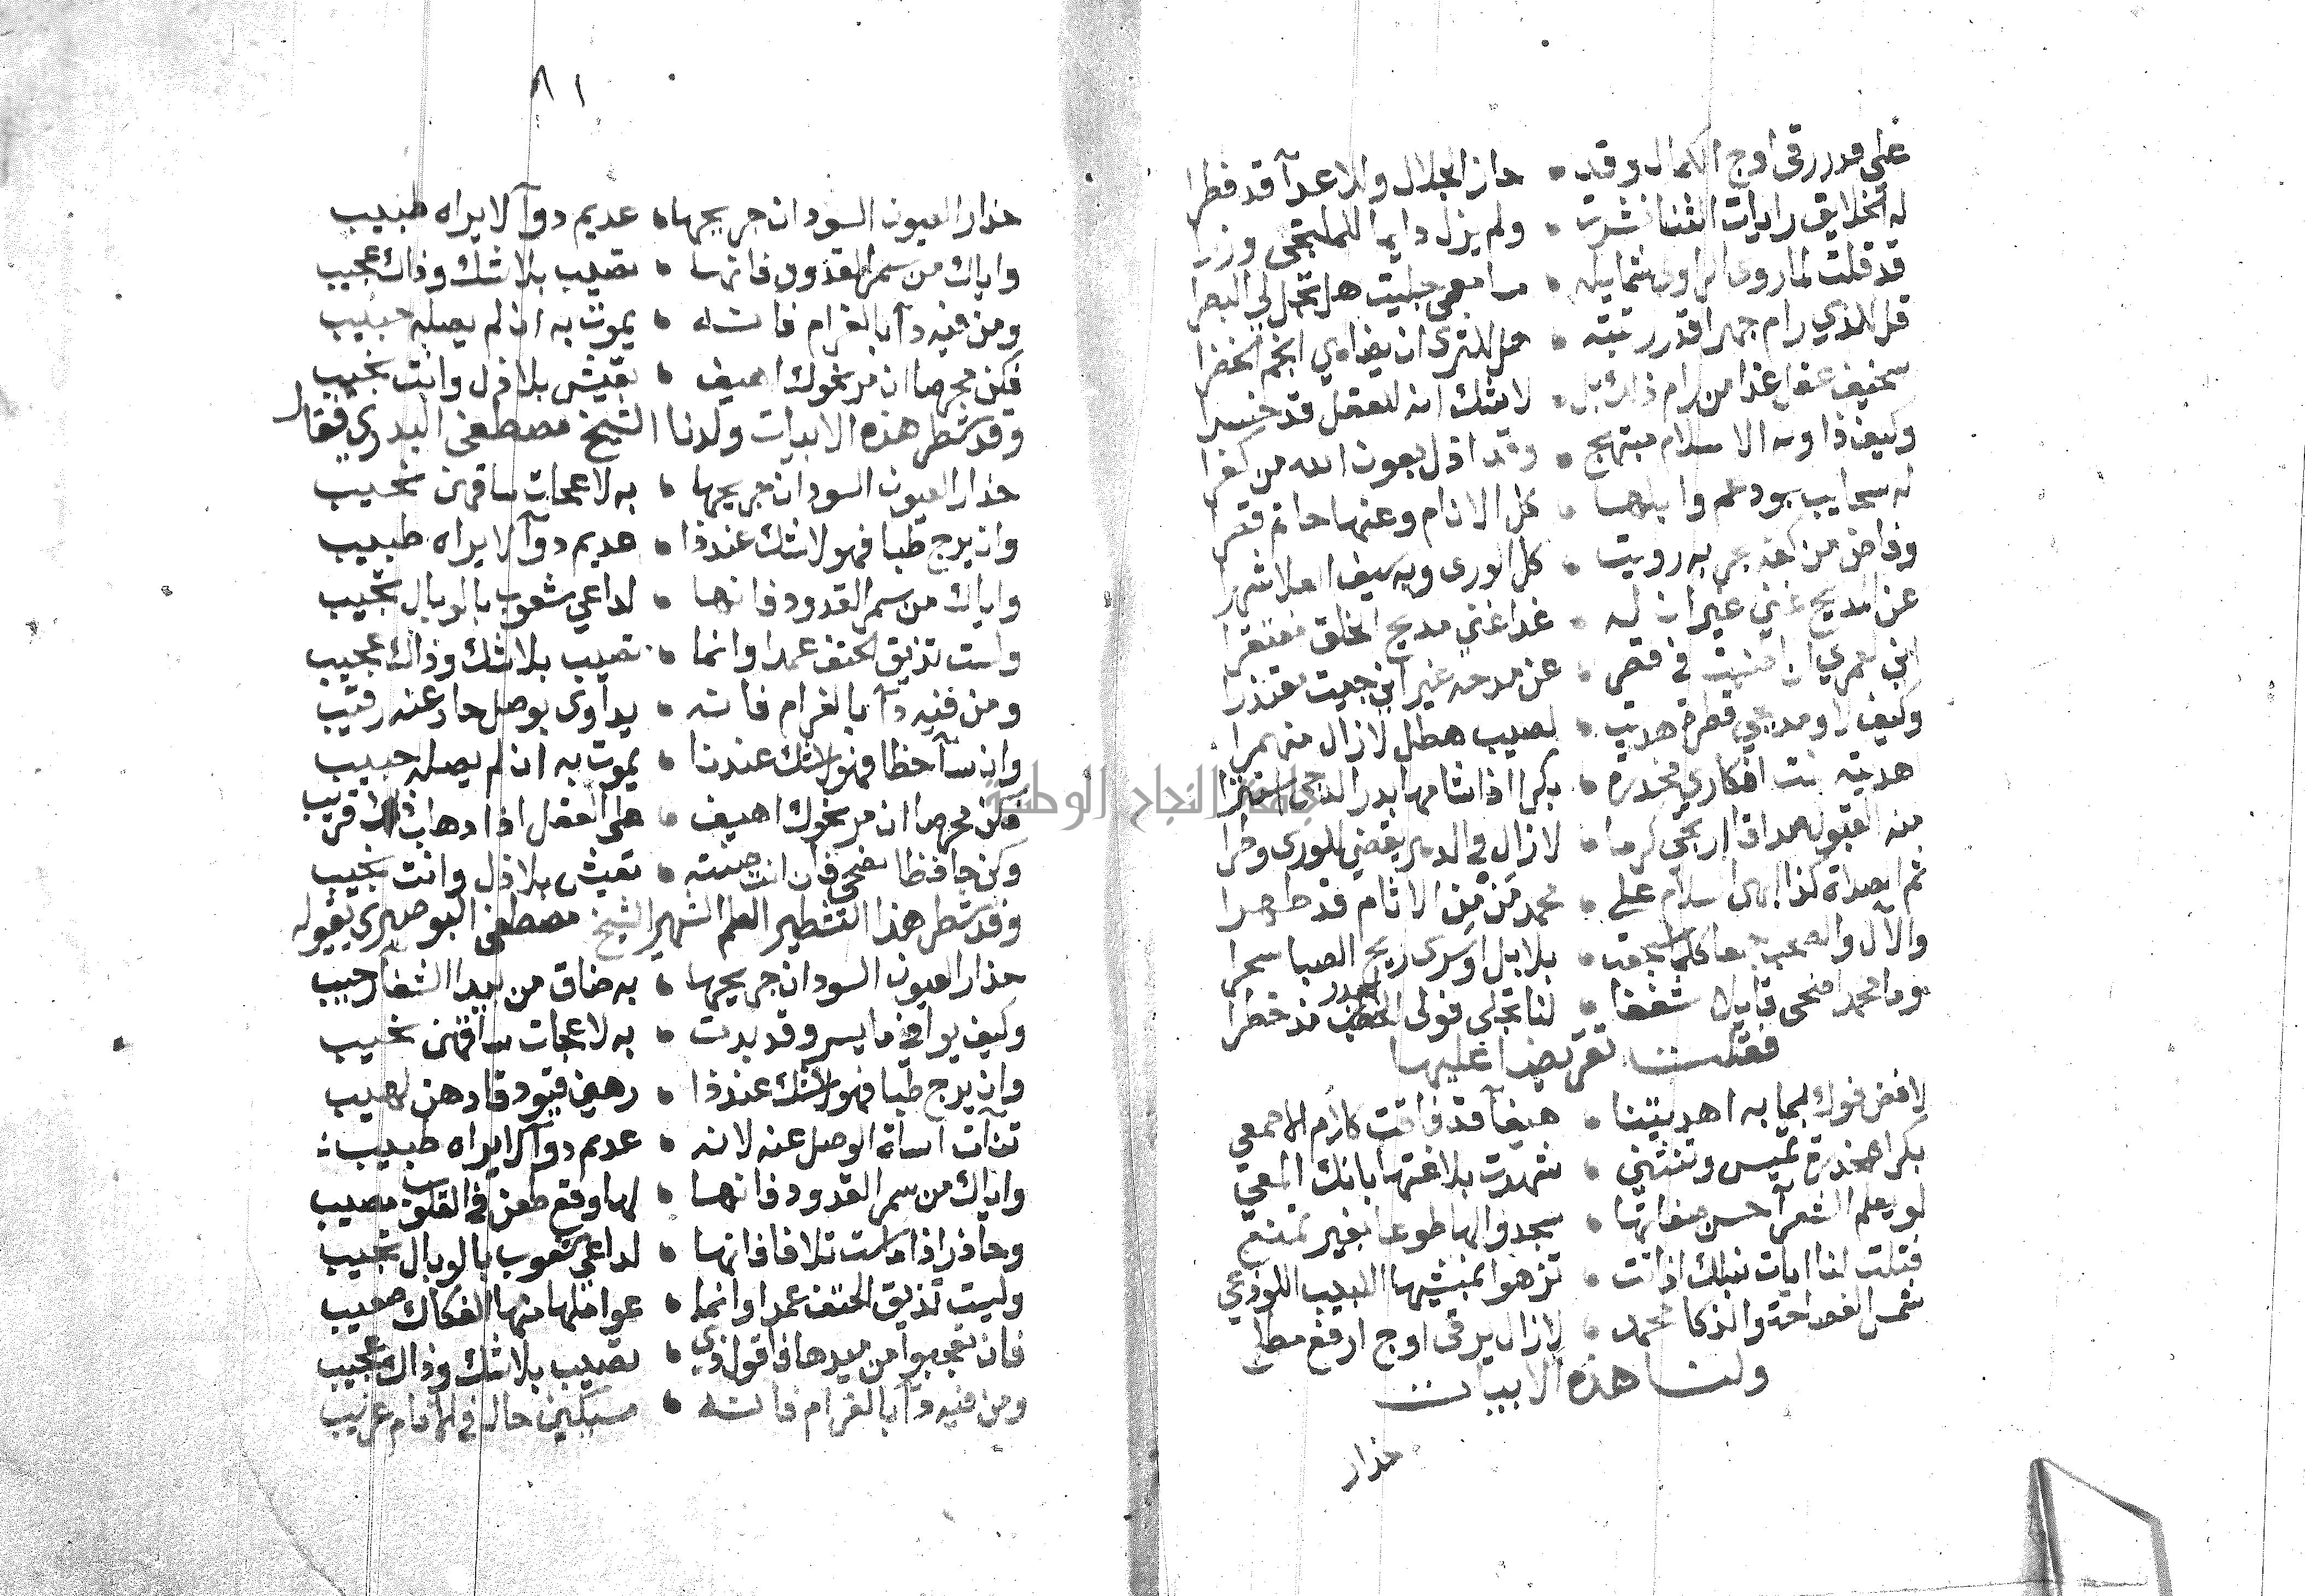 علي قدر رقى اوج الكمال وقد • حاز الجلال وللاعدآ قد فطرا
له الخلايق رايات الثنا نشرت • ولم يزل دايما للملتجى وزرا
قد قلت لما روى الراوى شمايله • مسامعى جليت هل تجل لي البصرا
قل للذي رام جهرا قدر رتبته • هل للثرى ان يضاهي انجم الخضرا
سخيف عقل غدا من رام ذاك بل • لا شك انه للعقل قد خسرا
وكيف ذا وبه الاسلام مبتهج • وقد اذل بعون الله من كفرا
له سحايب بود عم وابلها • كل الانام وعنها حاتم قصرا
وفاض من كفه بحر به رويت • كل الورى وبه سيف العلا شهرا
عن المديح غني غير ان له • غدا غني مديح الخلق مفتقرا
اني لعمري ان امنيت في قصر • عن مدحه غير اني جيت معتذرا
وكيف لا ومديحي قطرة هديت • لصيب هطل لازال منهمرا
هديته بنت افكاري مخدرة • بكرا اذا شامها بدر الدجى استترا
منه القبول صداقا ارتجى كرما • لازال في الدهر يقضي للورى وطرا
ثم الصلاة كذا ازكى سلام على • محمد من من الاثام قد طهرا
والآل والصحب جمعا كلما سجعت • بلابل او سرى ريح الصبا سحرا
وما محمد اضحى قايلا شغفا • لنا تجلى فولى البدر مذ خطرا
فقلت تقريضا عليها
لا فض فوك لما به اهديتنا • هيفآ قد فاقت كلام الاصمعي
بكرا مخدرة تميس وتنثني • شهدت بلاغتها بانك المعي
لو يعلم الشعرآ حسن صفاتها • سجدوا لها طوعا بغير تمنع
فتلت لنا ايات نبلك اذ اتت • تزهوا بمنشيها اللبيب اللوذعي
شمس الفصاحة والذكا محمد • لازال يرقى اوج ارفع مطلع
ولنا هذه الابيات
حذار
٨١
حذار العيون السود ان جريحها • عديم دوآ لا يراه طبيب
واياك من سمر القدود فانها • تصيب بلا شك وذاك عجيب
ومن فيه دآ بالغرام فانه • يموت به ان لم يصله حبيب
فكن محرصا ان مر نحوك اهيف • تعيش بلا ذل وانت نجيب
وقد شطر هذه الابيات ولدنا الشيخ مصطفى البدري فقال
حذار العيون السود ان جريحها • به لاعجات ساقهن نحيب
وان يرج طبا فهو لا شك عندذا • عديم دوآ لا يراه طبيب
واياك من سمر القدود فانها • لداعي شعوب بالوبال تجيب
وليست تذيق الحتف عمدا وانما • تصيب بلا شك وذاك عجيب
ومن فيه دآ بالغرام فانه • يداوى بوصل حاد عنه رقيب
وان سآ حظا فهو لا شك عندنا • يموت به ان لم يصله حبيب
فكن محرصا ان مر نحوك اهيف • على العقل اذا دهاب قريب
وكن حافظا نصحي فان انت صنته • تعيش بلا ذل وانت نجيب
وقد شطر هذا التشطير العلم الشهير الشيخ مصطفى البوصيرى بقوله
حذار العيون السود ان جريحها • به ضاق من بيدا الشفآ رحيب
وكيف يوافي ما يسر وقد بدت • به لاعجات ساقهن نحيب
وان يرج طبا فهو لا شك عندذا • رهين قيود قادهن لهيب
تنآت اسآة الوصل عنه لانه • عديم دوآ لا يراه طبيب
واياك من سمر القدود فانها • لها وقع طعن في القلوب مصيب
وحاذر اذا ماست تلافا فانها • لداعي شعوب بالوبال تجيب
وليست تذيق الحتف عمدا وانما • عواملها منها الفكاك صعيب
فان تعجبوا من ميدها فاقول ذي • تصيب بلا شك وذاك عجيب
ومن فيه دآ بالغرام فانه • مسكين حال في الانام غريب
جامعة النجاح الوطنية